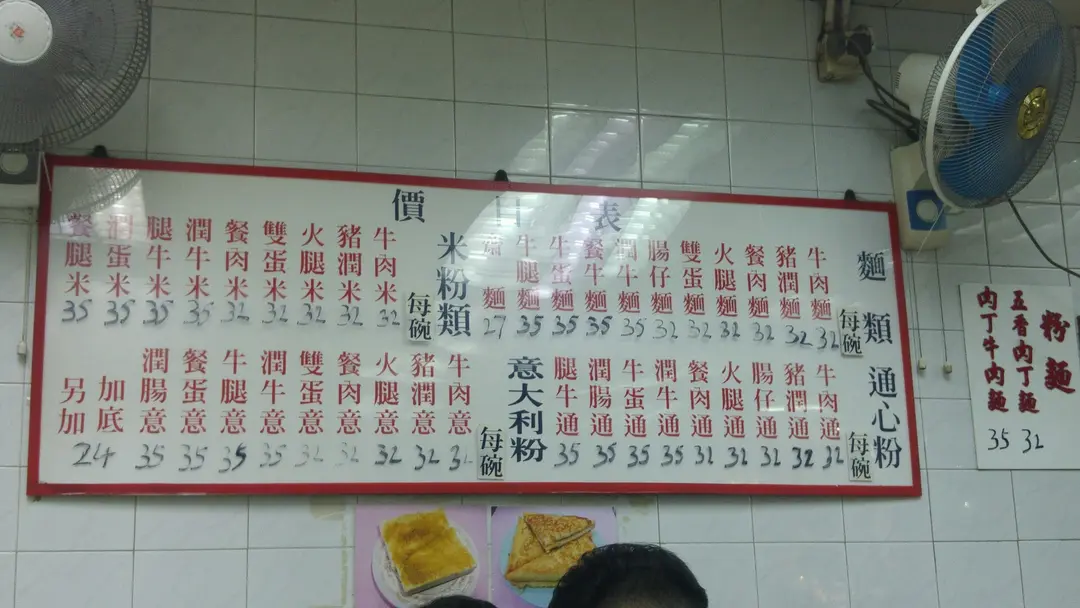 價目表
麵類
每碗
牛肉麵 32
豬潤麵 32
餐肉麵 32
火腿麵 32
雙蛋麵 32
腸仔麵 32
潤牛麵 35
餐牛麵 35
牛蛋麵 35
牛腿麵 35
齋麵 27
米粉類
每碗
牛肉米 32
豬潤米 32
火腿米 32
雙蛋米 32
餐肉米 32
潤牛米 35
腿牛米 35
潤蛋米 35
餐腿米 35
通心粉
每碗
牛肉通 32
豬潤通 32
腸仔通 32
火腿通 32
餐肉通 32
潤牛通 35
牛蛋通 35
潤腸通 35
腿牛通 35
意大利粉
每碗
牛肉意 32
豬潤意 32
火腿意 32
餐肉意 32
雙蛋意 32
潤牛意 35
牛腿意 35
餐蛋意 35
潤腸意 35
加底
另加
24
粉麵
五香肉丁麵 32
肉丁牛肉麵 35